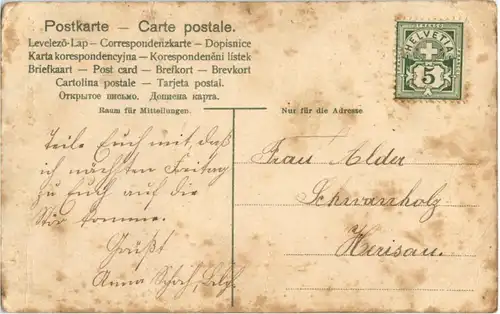 Postkarte — Carte postale.
Levelező-Lap – Correspondenzkarte – Dopisnice
Karta korespondencyjna – Korespondenční lístek
Briefkaart – Post card – Brefkort – Brevkort
Cartolina postale – Tarjeta postal.
Открытое письмо. Дописна карта.
Raum für Mitteilungen.
Nur für die Adresse
HELVETIA
5
Teile Euch mit, daß
ich nächsten Freitag
zu Euch auf die
Stör komme.
Grüßt
Anna
Frau Alder
Schwanholz
Herisau.